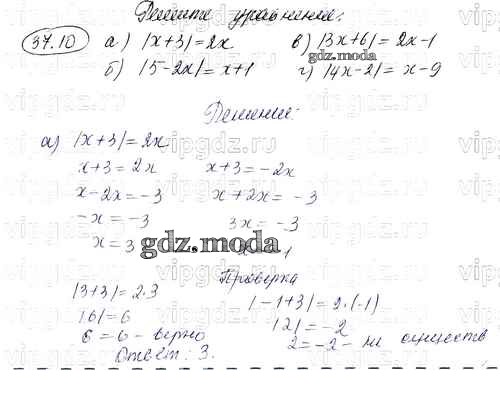 Решите уравнение:
37.10 а) |x+3|=2x в) |3x+6|=2x-1
б) |5-2x|=x+1 г) |4x-2|=x-9
gdz.moscow
Решение:
а) |x+3|=2x
x+3=2x x+3=-2x
x-2x=-3 x+2x=-3
-x=-3 3x=-3
x=3 1
gdz.moscow
Проверка
|3+3|=2·3 |-1+3|=2·(-1)
|6|=6 |2|=-2
6=6-верно 2=-2- не существ
Ответ: 3.